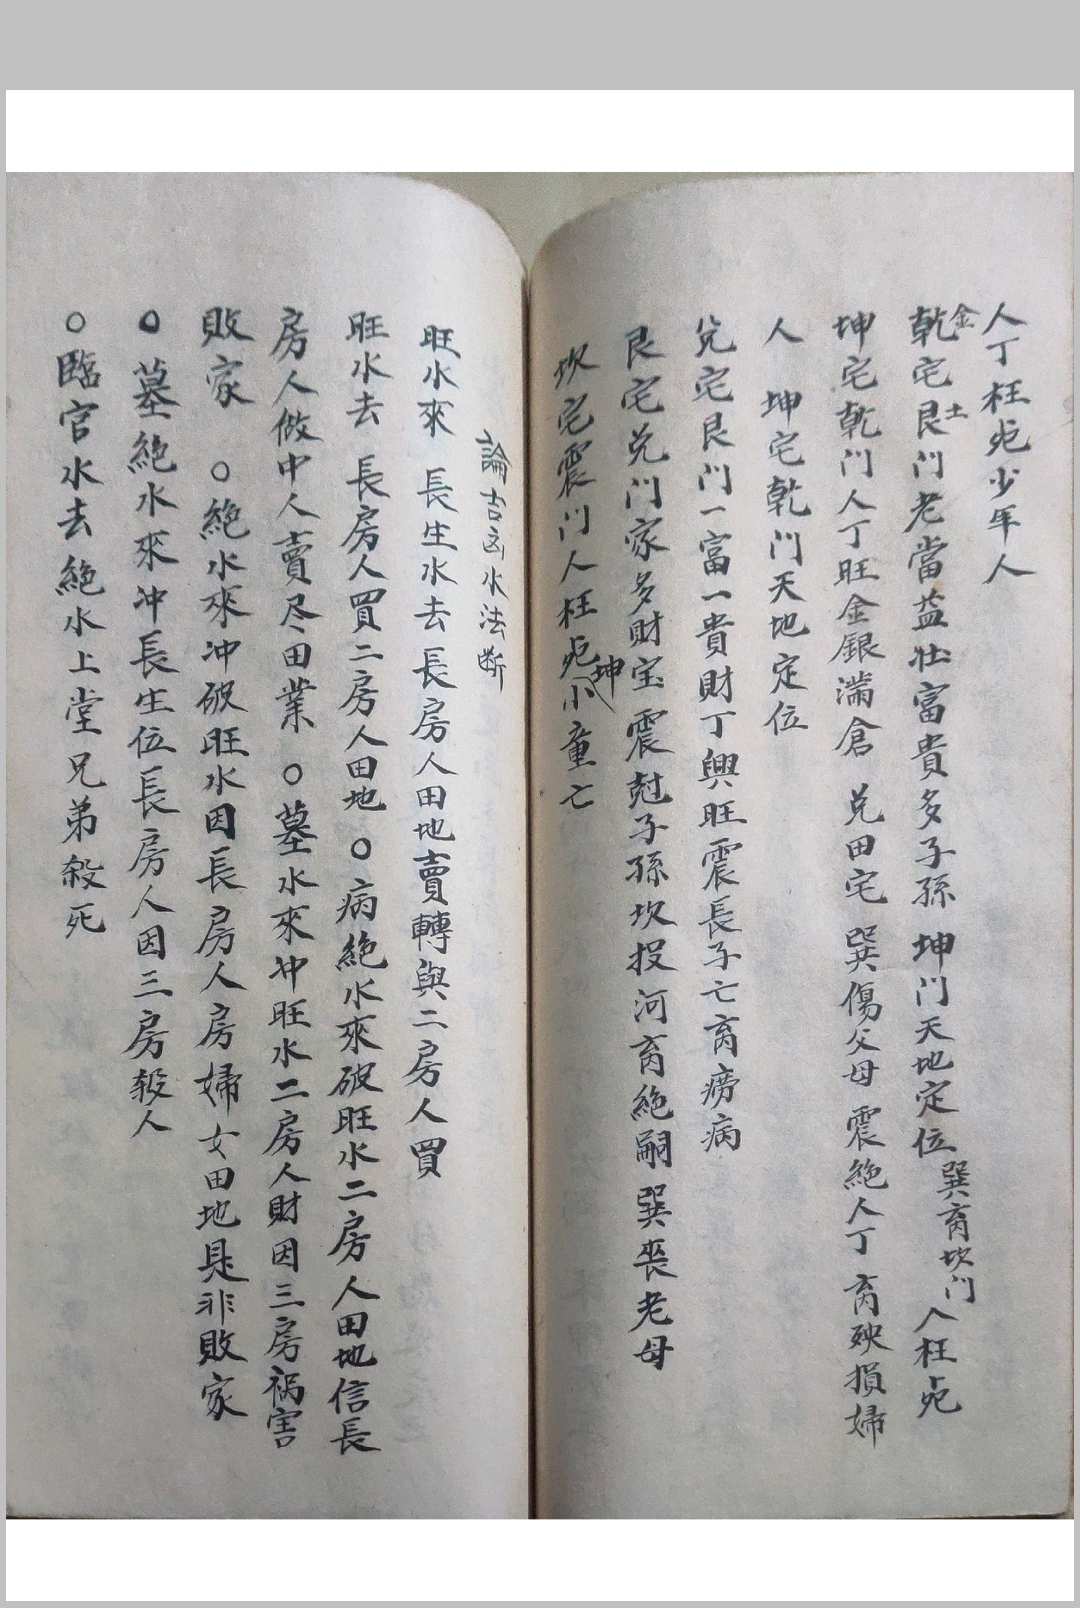 人丁枉死少年人
乾金宅艮土门老當益壯富貴多子孫 坤门天地定位 巽离坎门 人枉死
坤宅乾门人丁旺金銀滿倉 兑田宅 巽傷父母 震絶人丁 离殃損婦
人 坤宅乾门天地定位
兑宅艮门一富一貴財丁興旺震長子亡离痨病
艮宅兑门家多財宝 震尅子孫坎投河离絶嗣 巽丧老母
坎宅震门人枉死坤小童亡
論吉凶水法断
旺水來 長生水去長房人田地賣轉與二房人買
旺水去 長房人買二房人田地 〇病絶水來破旺水二房人田地信長
房人做中人賣尽田業 〇墓水來冲旺水二房人財因三房禍害
敗家 〇絶水來冲破旺水因長房人房婦女田地是非敗家
〇墓絶水來冲長生位長房人因三房殺人
〇臨官水去絶水上堂兄弟殺死